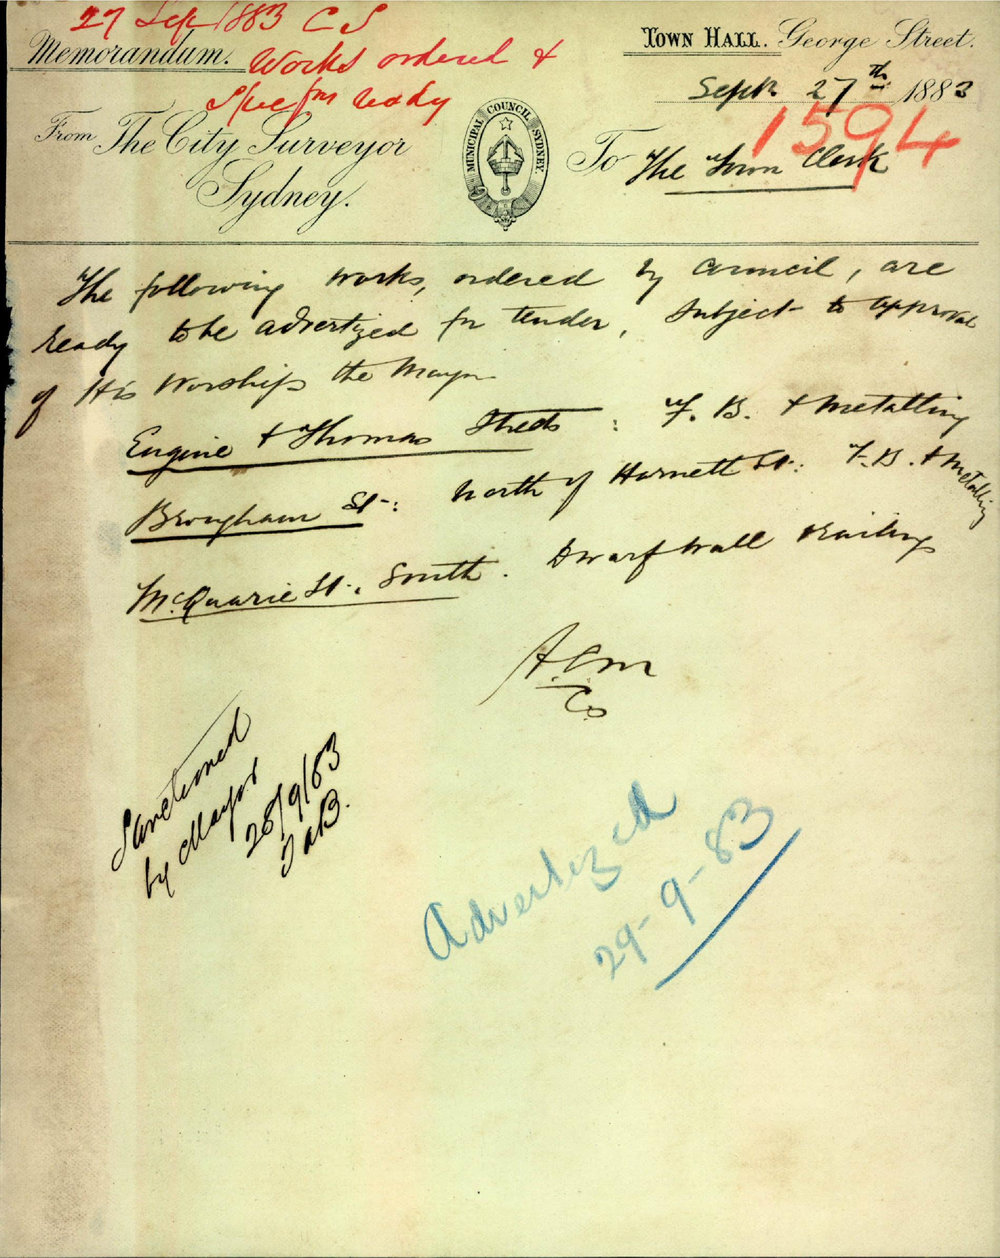 27 Sep 1883 C S
Memorandum.
Works ordered &
Specfns ready
Town Hall. George Street.
Sept 27th 1883
1594
From The City Surveyor
Sydney.
MUNICIPAL COUNCIL SYDNEY.
To The Town Clerk
The following works, ordered by Council, are
ready to be advertized for tender, subject to approval
of His Worship the Mayor
Engine & Thomas Streets : F. B. & Metalling
Brougham St: North of Harnett St: F. B. & Metalling
McQuarie St. South. Dwarf wall & railings
A.C.M
C.S
Sanctioned
by Mayor
28/9/83
Advertized
29-9-83